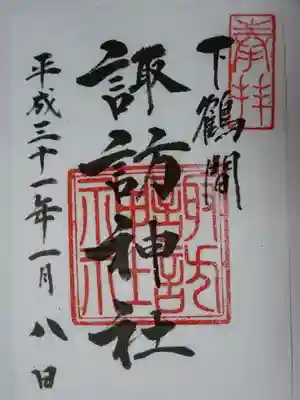 奉拝
下鶴間
諏訪神社
諏訪
神社
平成三十一年一月八日